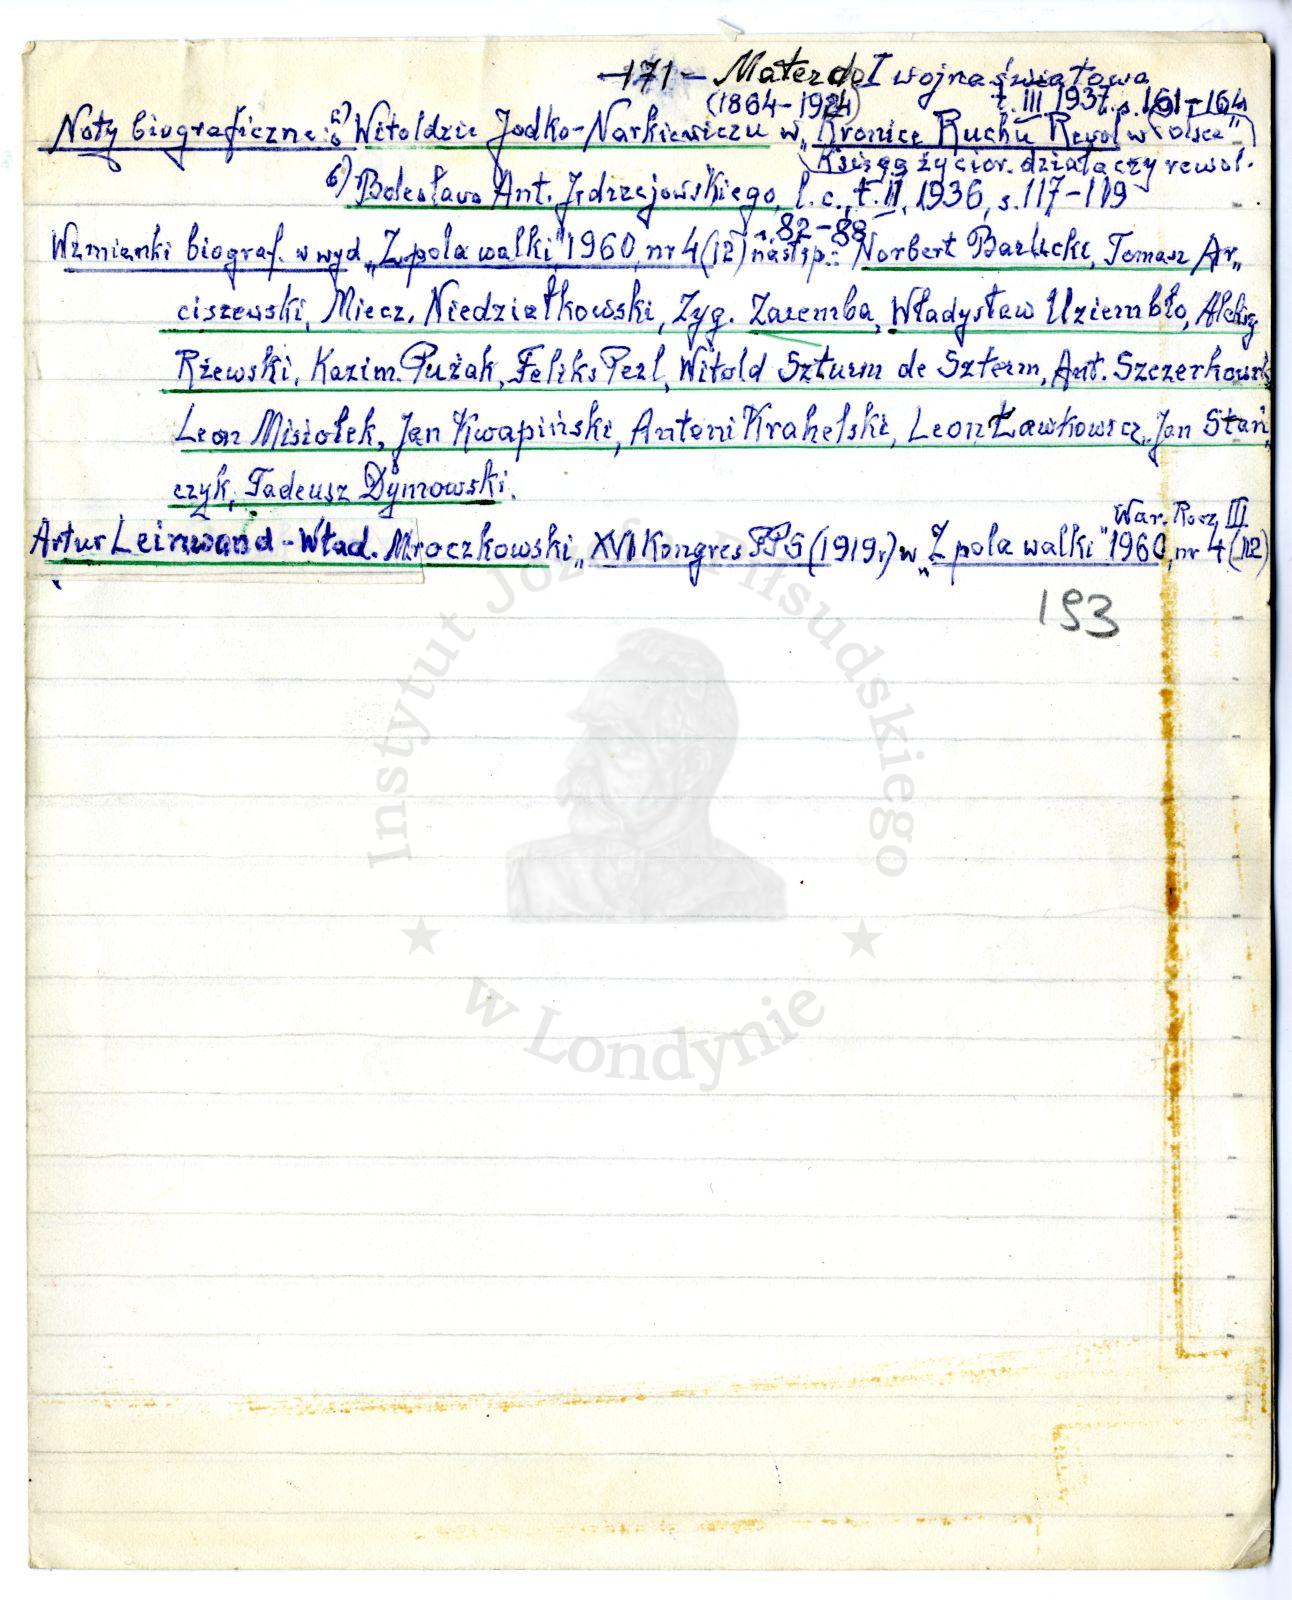 -171- Mater do I wojna światowa
(1864-1924) t. III 1937. s. 161-164
Noty biograficzne: o Witoldzie Jodko-Narkiewiczu w „Kronice Ruchu Rewol w Polsce"
Księga życior. działaczy rewol.
6) Bolesława Ant. Jędrzejowskiego, l. c., t. II, 1936, s. 117-119
s. 82-88
Wzmianki biograf. w wyd „Z pola walki" 1960, nr 4 (12) następ.: Norbert Barlicki, Tomasz Ar„
ciszewski, Miecz. Niedziałkowski, Zyg. Zaremba, Władysław Uziembło, Aleksy
Rżewski, Kazim. Pużak, Feliks Perl, Witold Szturm de Szterm, Ant. Szczerkowski
Leon Misiołek, Jan Kwapiński, Antoni Krahelski, Leon Ławkowicz, Jan Stań„
czyk, Tadeusz Dymowski.
War. Rocz. III
Artur Leinwand - Wład. Mroczkowski „XVI Kongres PPS (1919r) w „Z pola walki" 1960, nr 4 (12)
193
Instytut Józefa Piłsudskiego
w Londynie